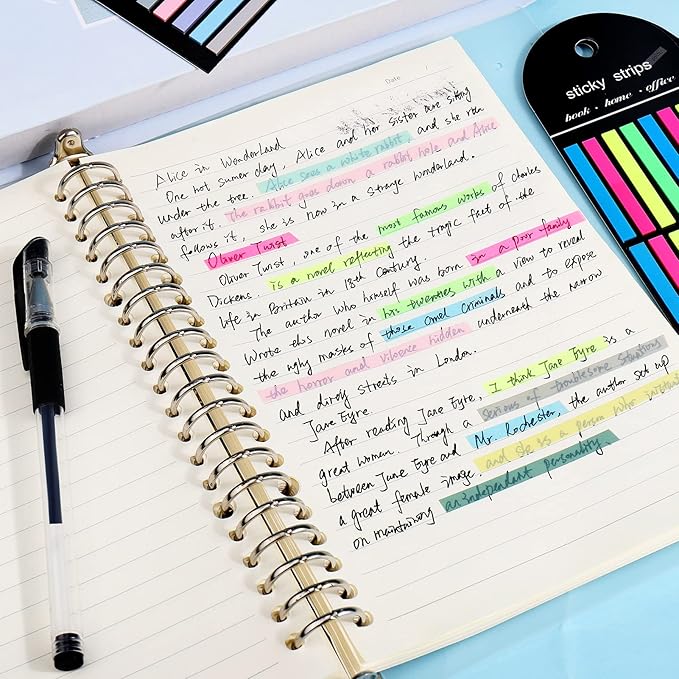 Date
Alice in Wonderland
One hot sumer day, Alice and her sister are siting
under the tree. Alice sees a white rabbit, and she ran
after it. The rabbit goes down a rabbit hole and Alice
follows it, she is now in a strage wonderland.
Oliver Twist
Oliver Twist, one of the most famous works of charles
Dickens, is a novel reflecting the tragic fact of the
life in Britain in 18th Century.
The author who himself was born in a poor family
Wrote this novel in his twenties with a view to reveal
the ugly masks of those cruel Criminals and to expose
the horror and vilence hidden underneath the narrow
and dirdy streets in London.
Jane Eyre
After reading Jane Eyre, I think Jane Eyre is a
great woman. Through a serious of troublesome stuations
between Jane Eyre and Mr. Rochester, the author set up
a great female image. and she is a person who
on maintaning an independant personality.
sticky strips
book · home · office